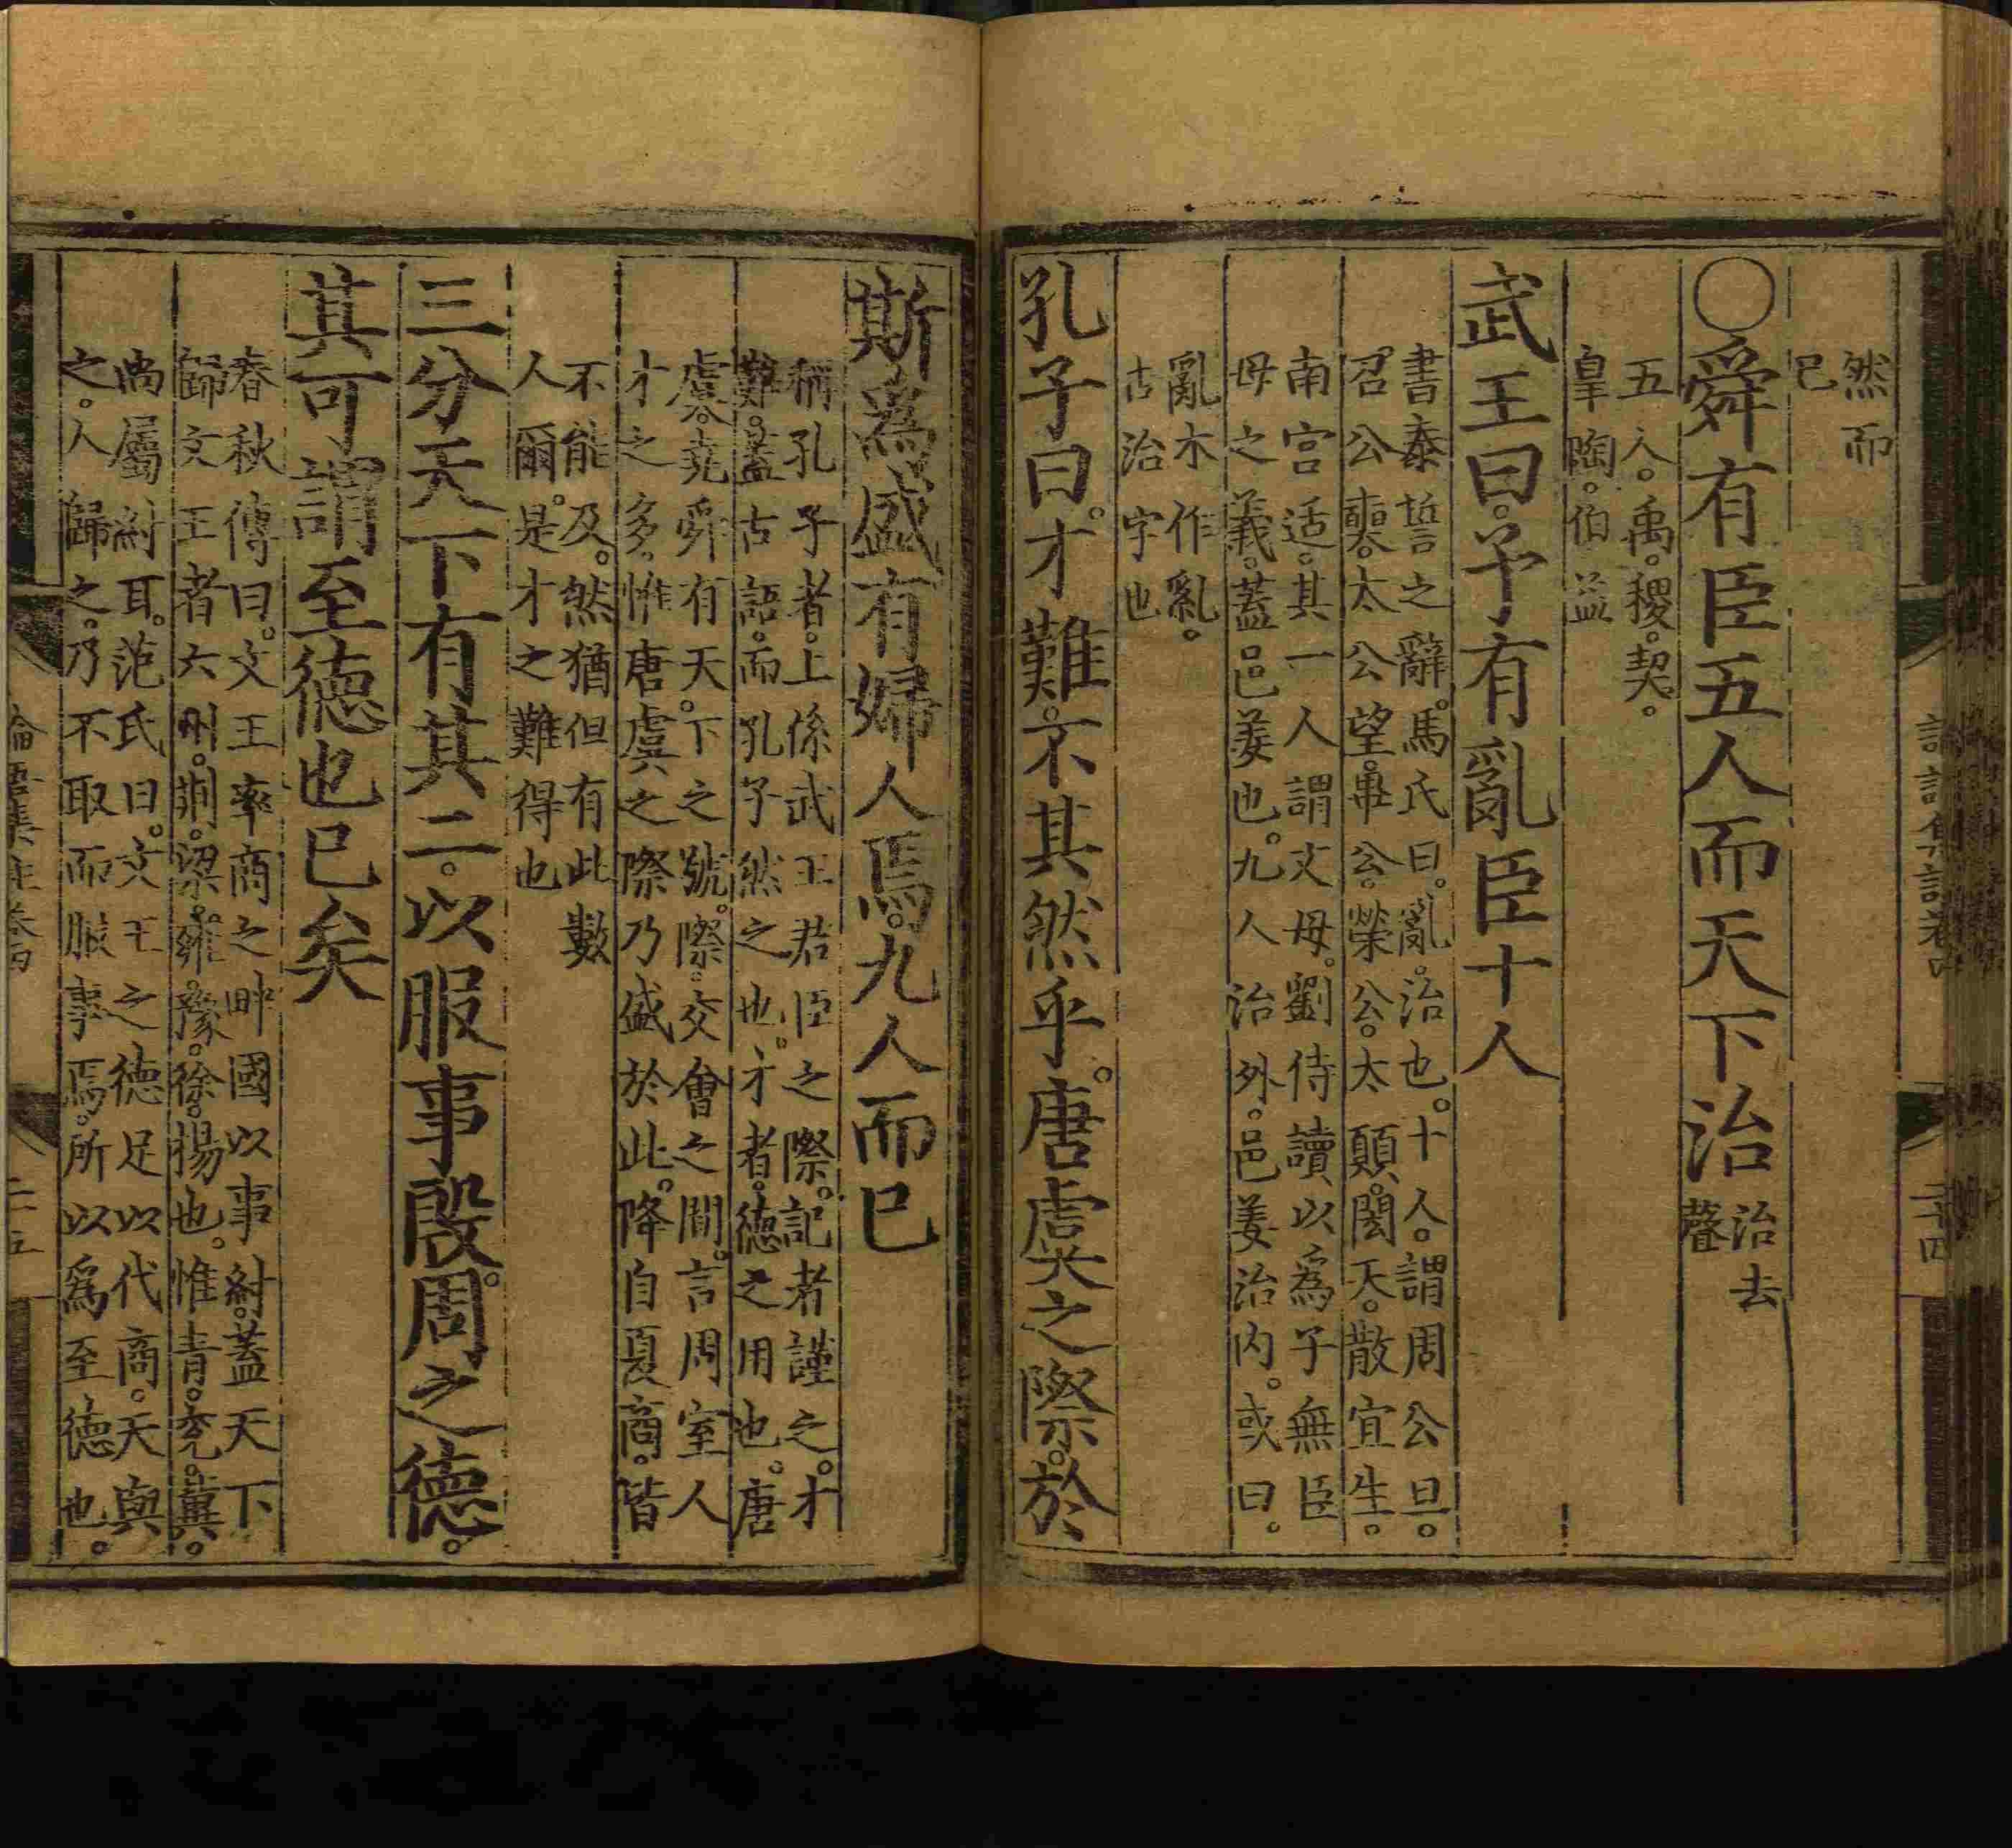 然而
已
○舜有臣五人而天下治治去
聲
五人。禹。稷。契。
皐陶。伯益
武王曰。予有亂臣十人
書泰誓之辭。馬氏曰。亂。治也。十人。謂周公旦。
召公奭。太公望。畢公。榮公。太顛。閎夭。散宜生。
南宮适。其一人謂文母。劉侍讀以爲子無臣
母之義。蓋邑姜也。九人治外。邑姜治内。或曰。
亂本作乿。
古治字也
孔子曰。才難。不其然乎。唐虞之際。於
斯爲盛。有婦人焉。九人而已
稱孔子者。上係武王君臣之際。記者謹之。才
難。蓋古語。而孔子然之也。才者。德之用也。唐
虞。堯舜有天下之號。際。交會之間。言周室人
才之多。惟唐虞之際乃盛於此。降自夏商。皆
不能及。然猶但有此數
人爾。是才之難得也
三分天下有其二。以服事殷。周之德。
其可謂至德也已矣
春秋傳曰。文王率商之畔國以事紂。蓋天下
歸文王者六州。荊。梁。雍。豫。徐。揚也。惟青。兗。冀。
尚屬紂耳。范氏曰。文王之德足以代商。天與
之。人歸之。乃不取而服事焉。所以爲至德也。
論語集註卷四
二十五